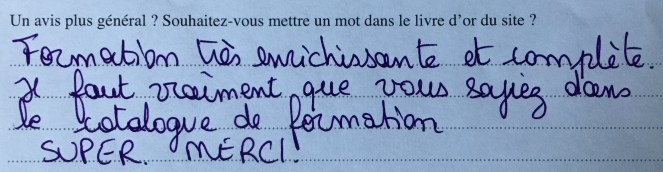 Un avis plus général ? Souhaitez-vous mettre un mot dans le livre d'or du site ?
Formation très enrichissante et complète.
Il faut vraiment que vous sayiez dans
le catalogue de formation
SUPER. MERCI!